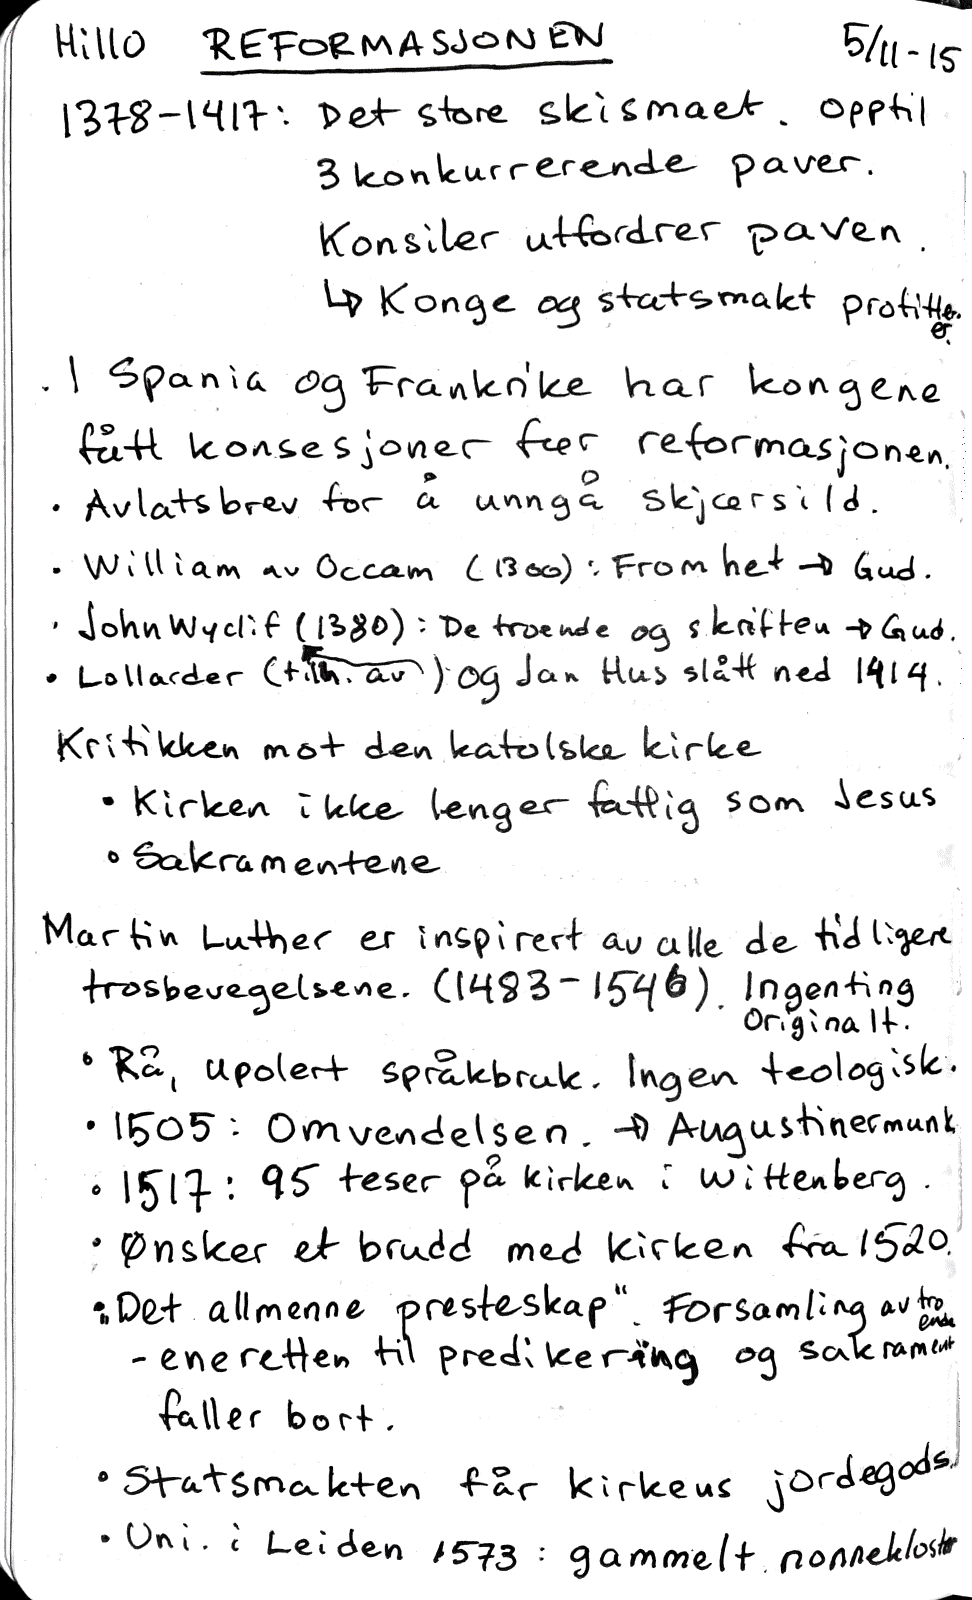 Hillo REFORMASJONEN 5/11-15
1378-1417: Det store skismaet. Opptil
3 konkurrerende paver.
Konsiler utfordrer paven.
↳ Konge og statsmakt profitterer.
· I Spania og Frankrike har kongene
fått konsesjoner før reformasjonen.
· Avlatsbrev for å unngå skjærsild.
· William av Occam (1300): Fromhet → Gud.
· John Wyclif (1380): De troende og skriften → Gud.
· Lollarder (tilh. av) og Jan Hus slått ned 1414.
Kritikken mot den katolske kirke
• Kirken ikke lenger fattig som Jesus
• Sakramentene
Martin Luther er inspirert av alle de tidligere
trosbevegelsene. (1483-1546). Ingenting
originalt.
• Rå, upolert språkbruk. Ingen teologisk.
• 1505: Omvendelsen. → Augustinermunk
• 1517: 95 teser på kirken i Wittenberg.
• Ønsker et brudd med kirken fra 1520.
• "Det allmenne presteskap". Forsamling av troende
- eneretten til predikering og sakrament
faller bort.
• Statsmakten får kirkens jordegods.
• Uni. i Leiden 1573: gammelt nonnekloster